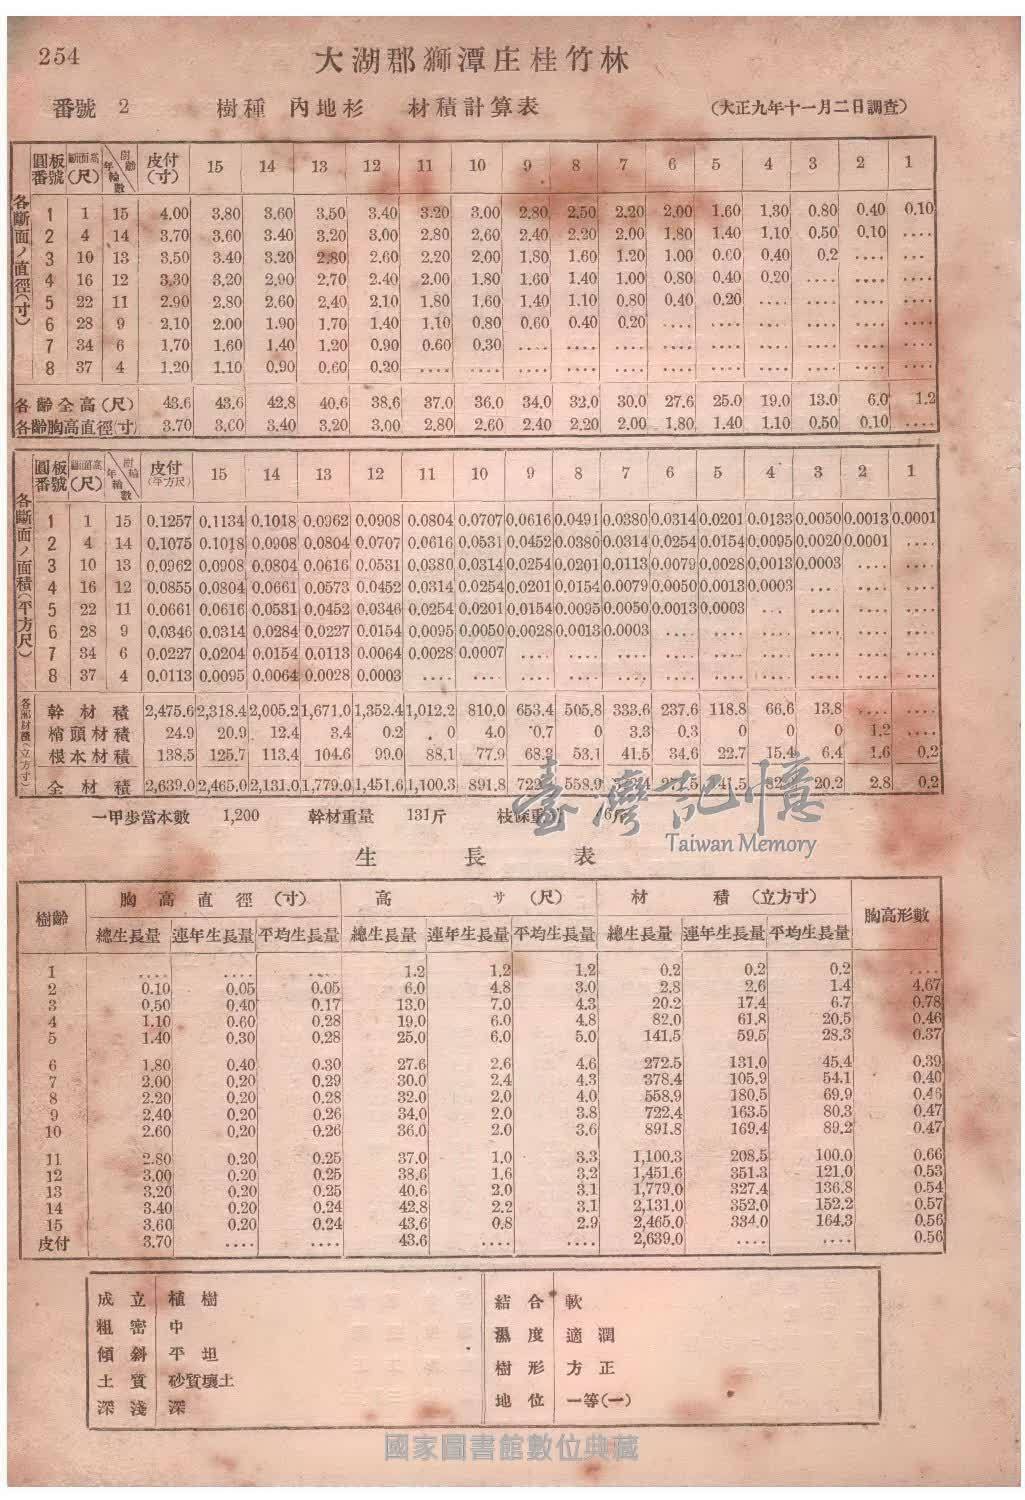 254
大湖郡獅潭庄桂竹林
番號 2 樹種 內地杉 材積計算表 (大正九年十一月二日調查)
圓板番號 斷面高(尺) 樹齡 年輪數 皮付(寸) 15 14 13 12 11 10 9 8 7 6 5 4 3 2 1
各斷面ノ直徑(寸)
1 1 15 4.00 3.80 3.60 3.50 3.40 3.20 3.00 2.80 2.50 2.20 2.00 1.60 1.30 0.80 0.40 0.10
2 4 14 3.70 3.60 3.40 3.20 3.00 2.80 2.60 2.40 2.20 2.00 1.80 1.40 1.10 0.50 0.10 ....
3 10 13 3.50 3.40 3.20 2.80 2.60 2.20 2.00 1.80 1.60 1.20 1.00 0.60 0.40 0.2 .... ....
4 16 12 3.30 3.20 2.90 2.70 2.40 2.00 1.80 1.60 1.40 1.00 0.80 0.40 0.20 .... .... ....
5 22 11 2.90 2.80 2.60 2.40 2.10 1.80 1.60 1.40 1.10 0.80 0.40 0.20 .... .... .... ....
6 28 9 2.10 2.00 1.90 1.70 1.40 1.10 0.80 0.60 0.40 0.20 .... .... .... .... .... ....
7 34 6 1.70 1.60 1.40 1.20 0.90 0.60 0.30 .... .... .... .... .... .... .... .... ....
8 37 4 1.20 1.10 0.90 0.60 0.20 .... .... .... .... .... .... .... .... .... .... ....
各齡全高(尺) 43.6 43.6 42.8 40.6 38.6 37.0 36.0 34.0 32.0 30.0 27.6 25.0 19.0 13.0 6.0 1.2
各齡胸高直徑(寸) 3.70 3.60 3.40 3.20 3.00 2.80 2.60 2.40 2.20 2.00 1.80 1.40 1.10 0.50 0.10 ....
圓板番號 斷面高(尺) 樹齡 年輪數 皮付(平方尺) 15 14 13 12 11 10 9 8 7 6 5 4 3 2 1
各斷面ノ面積(平方尺)
1 1 15 0.1257 0.1134 0.1018 0.0962 0.0908 0.0804 0.0707 0.0616 0.0491 0.0380 0.0314 0.0201 0.0133 0.0050 0.0013 0.0001
2 4 14 0.1075 0.1018 0.0908 0.0804 0.0707 0.0616 0.0531 0.0452 0.0380 0.0314 0.0254 0.0154 0.0095 0.0020 0.0001 ....
3 10 13 0.0962 0.0908 0.0804 0.0616 0.0531 0.0380 0.0314 0.0254 0.0201 0.0113 0.0079 0.0028 0.0013 0.0003 .... ....
4 16 12 0.0855 0.0804 0.0661 0.0573 0.0452 0.0314 0.0254 0.0201 0.0154 0.0079 0.0050 0.0013 0.0003 ... .... ....
5 22 11 0.0661 0.0616 0.0531 0.0452 0.0346 0.0254 0.0201 0.0154 0.0095 0.0050 0.0013 0.0003 ... .... .... ....
6 28 9 0.0346 0.0314 0.0284 0.0227 0.0154 0.0095 0.0050 0.0028 0.0013 0.0003 .... .... .... .... .... ....
7 34 6 0.0227 0.0204 0.0154 0.0113 0.0064 0.0028 0.0007 .... .... .... .... .... .... .... .... ....
8 37 4 0.0113 0.0095 0.0064 0.0028 0.0003 .... .... .... .... .... .... .... .... .... .... ....
各部材積(立方寸)
幹材積 2,475.6 2,318.4 2,005.2 1,671.0 1,352.4 1,012.2 810.0 653.4 505.8 333.6 237.6 118.8 66.6 13.8 .... ....
梢頭材積 24.9 20.9 12.4 3.4 0.2 0 4.0 0.7 0 3.3 0.3 0 0 0 1.2 ....
根本材積 138.5 125.7 113.4 104.6 99.0 88.1 77.9 68.3 53.1 41.5 34.6 22.7 15.4 6.4 1.6 0.2
全材積 2,639.0 2,465.0 2,131.0 1,779.0 1,451.6 1,100.3 891.8 558.9 20.2 2.8 0.2
一甲步當本數 1,200 幹材重量 131斤 枝條重量
臺灣記憶
Taiwan Memory
生長表
樹齡 胸高直徑(寸) 高サ(尺) 材積(立方寸) 胸高形數
總生長量 連年生長量 平均生長量 總生長量 連年生長量 平均生長量 總生長量 連年生長量 平均生長量
1 .... .... .... 1.2 1.2 1.2 0.2 0.2 0.2 ....
2 0.10 0.05 0.05 6.0 4.8 3.0 2.8 2.6 1.4 4.67
3 0.50 0.40 0.17 13.0 7.0 4.3 20.2 17.4 6.7 0.78
4 1.10 0.60 0.28 19.0 6.0 4.8 82.0 61.8 20.5 0.46
5 1.40 0.30 0.28 25.0 6.0 5.0 141.5 59.5 28.3 0.37
6 1.80 0.40 0.30 27.6 2.6 4.6 272.5 131.0 45.4 0.39
7 2.00 0.20 0.29 30.0 2.4 4.3 378.4 105.9 54.1 0.40
8 2.20 0.20 0.28 32.0 2.0 4.0 558.9 180.5 69.9 0.46
9 2.40 0.20 0.26 34.0 2.0 3.8 722.4 163.5 80.3 0.47
10 2.60 0.20 0.26 36.0 2.0 3.6 891.8 169.4 89.2 0.47
11 2.80 0.20 0.25 37.0 1.0 3.3 1,100.3 208.5 100.0 0.66
12 3.00 0.20 0.25 38.6 1.6 3.2 1,451.6 351.3 121.0 0.53
13 3.20 0.20 0.25 40.6 2.0 3.1 1,779.0 327.4 136.8 0.54
14 3.40 0.20 0.24 42.8 2.2 3.1 2,131.0 352.0 152.2 0.57
15 3.60 0.20 0.24 43.6 0.8 2.9 2,465.0 334.0 164.3 0.56
皮付 3.70 .... .... 43.6 .... .... 2,639.0 .... .... 0.56
成立 植樹
粗密 中
傾斜 平坦
土質 砂質壤土
深淺 深
結合 軟
濕度 適潤
樹形 方正
地位 一等(一)
國家圖書館數位典藏